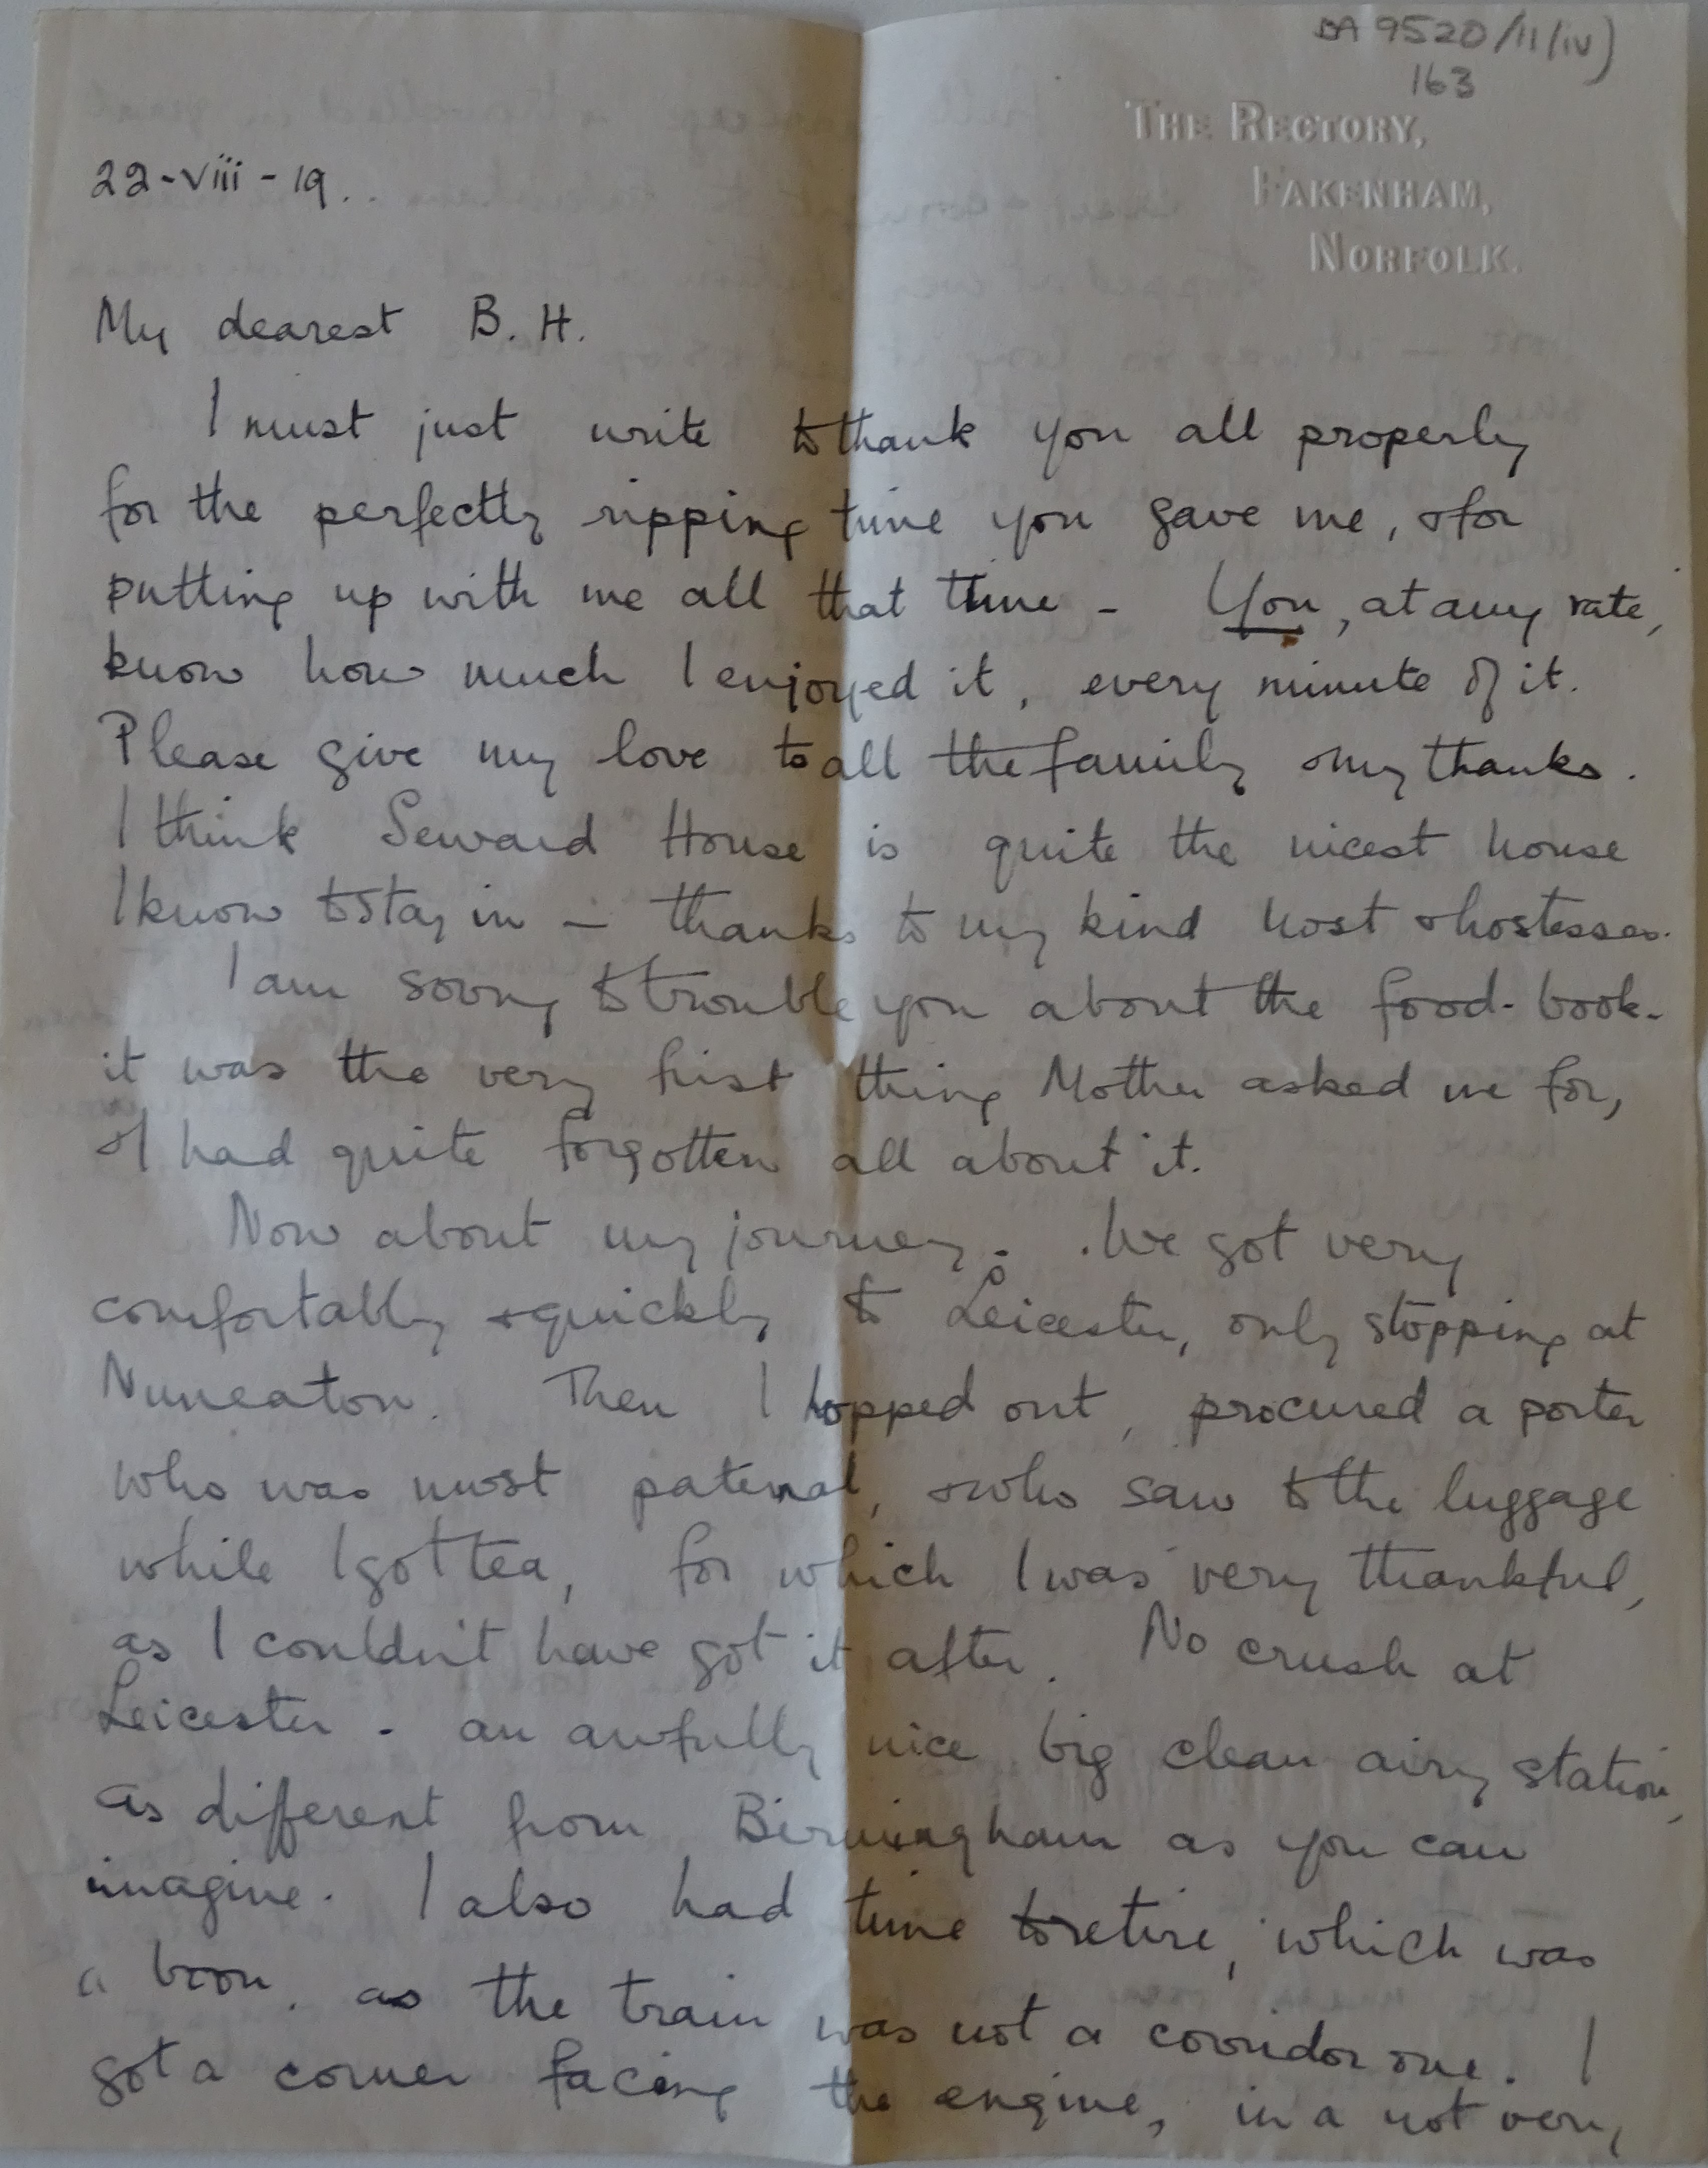 BA 9520/11/iv)
163
THE RECTORY,
FAKENHAM,
NORFOLK.
22-viii-19.
My dearest B. H.
I must just write to thank you all properly
for the perfectly ripping time you gave me, & for
putting up with me all that time - You, at any rate,
know how much I enjoyed it, every minute of it.
Please give my love to all the family & my thanks.
I think Seward House is quite the nicest house
I know to stay in - thanks to my kind host & hostesses.
I am sorry to trouble you about the food-book-
it was the very first thing Mother asked me for,
& I had quite forgotten all about it.
Now about my journey. We got very
comfortably & quickly to Leicester, only stopping at
Nuneaton. Then I hopped out, procured a porter
who was most paternal, & who saw to the luggage
while I got tea, for which I was very thankful,
as I couldn't have got it after. No crush at
Leicester - an awfully nice big clean airy station,
as different from Birmingham as you can
imagine. I also had time to retire, which was
a boon, as the train was not a corridor one. I
got a corner facing the engine, in a not very